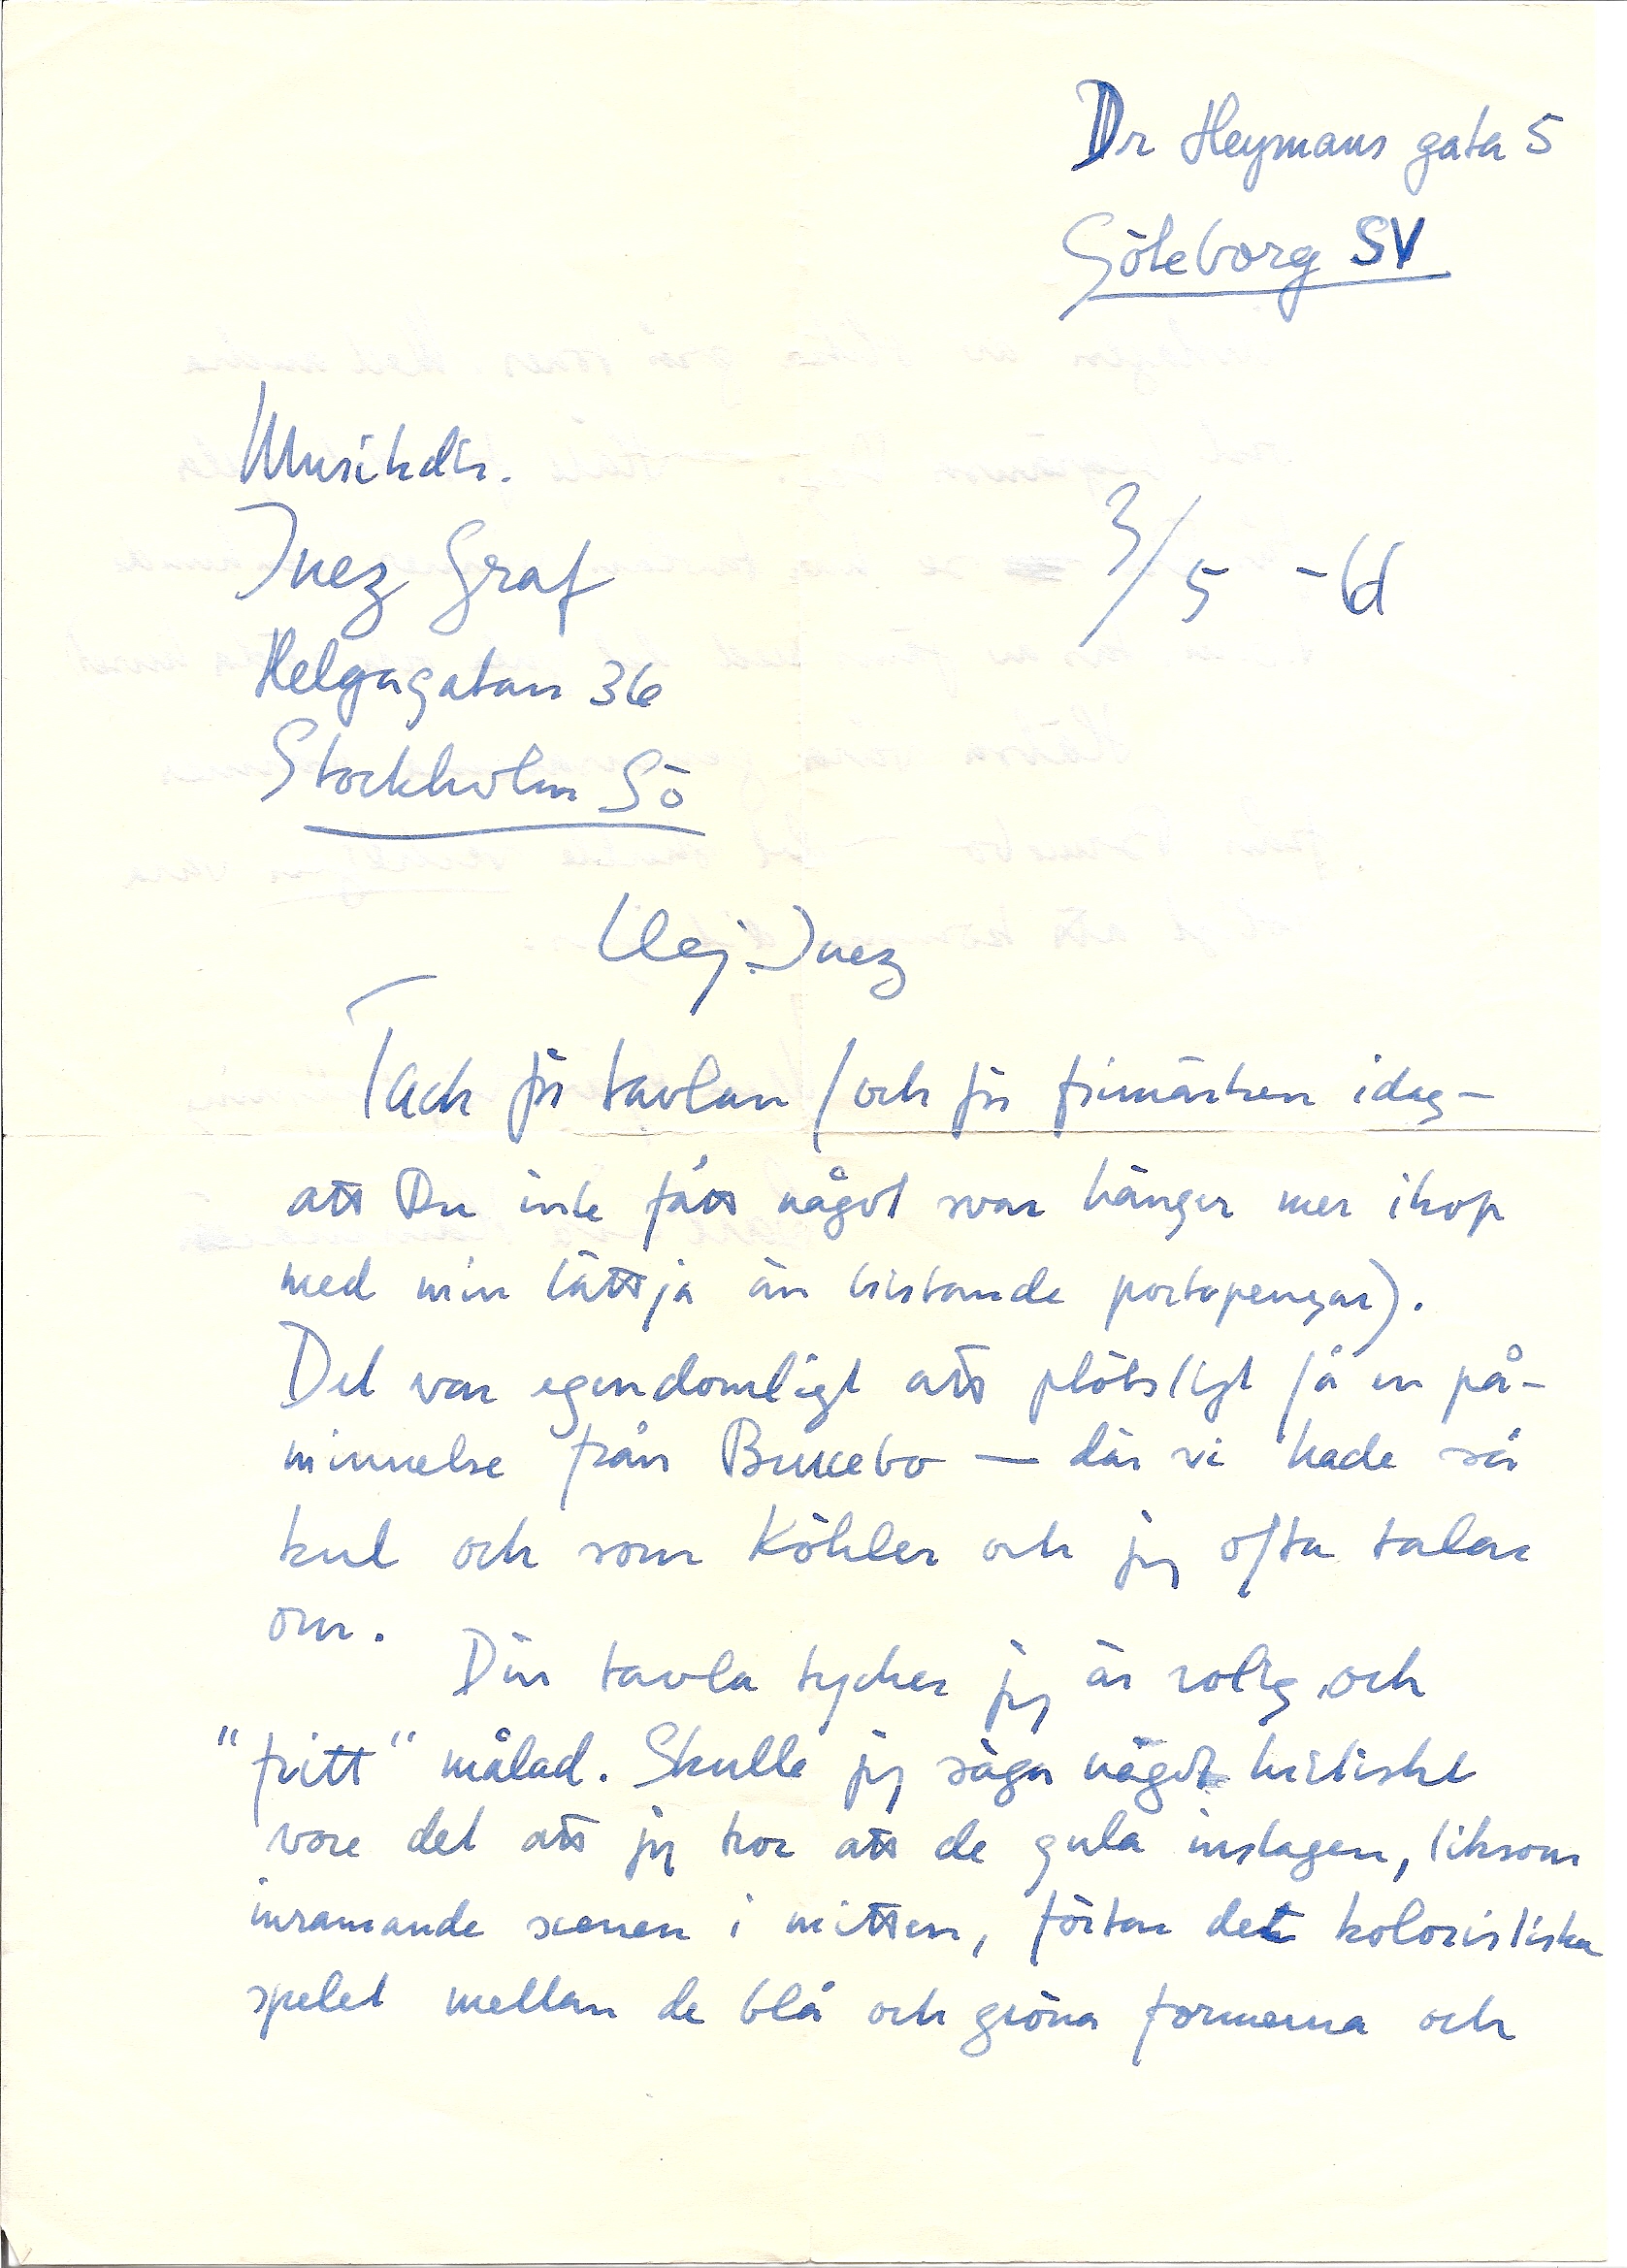 Dr Heymans gata 5
Göteborg SV
Musikdir.
Inez Graf
Helgagatan 36
Stockholm Sö
3/5 -61
Hej Inez
Tack för tavlan (och för frimärken idag –
att Du inte fått något svar hänger mer ihop
med min lättja än bristande portopengar).
Det var egendomligt att plötsligt få en på-
minnelse från Brucebo — där vi hade så
kul och som Köhler och jag ofta talar
om.
Din tavla tycker jag är rolig och
"fritt" målad. Skulle jag säga något kritiskt
vore det att jag tror att de gula inslagen, liksom
inramande scenen i mitten, förtar det koloristiska
spelet mellan de blå och gröna formerna och